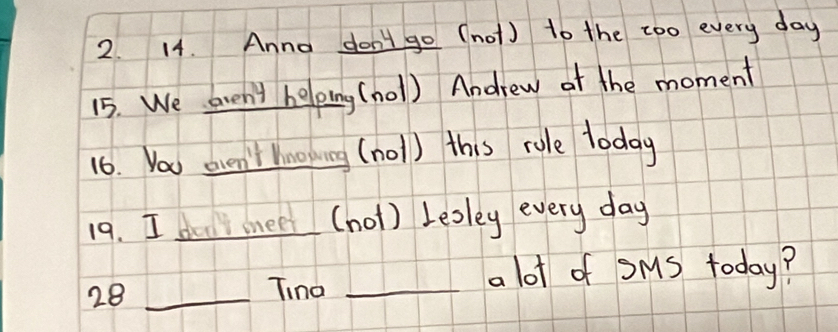 2. 14. Anna don't go (not) to the zoo every day
15. We aren't helping (not) Andrew at the moment
16. You aren't knowing (not) this rule today
19. I don't meet (not) Lesley every day
28 ______ Tina ______ a lot of SMS today?